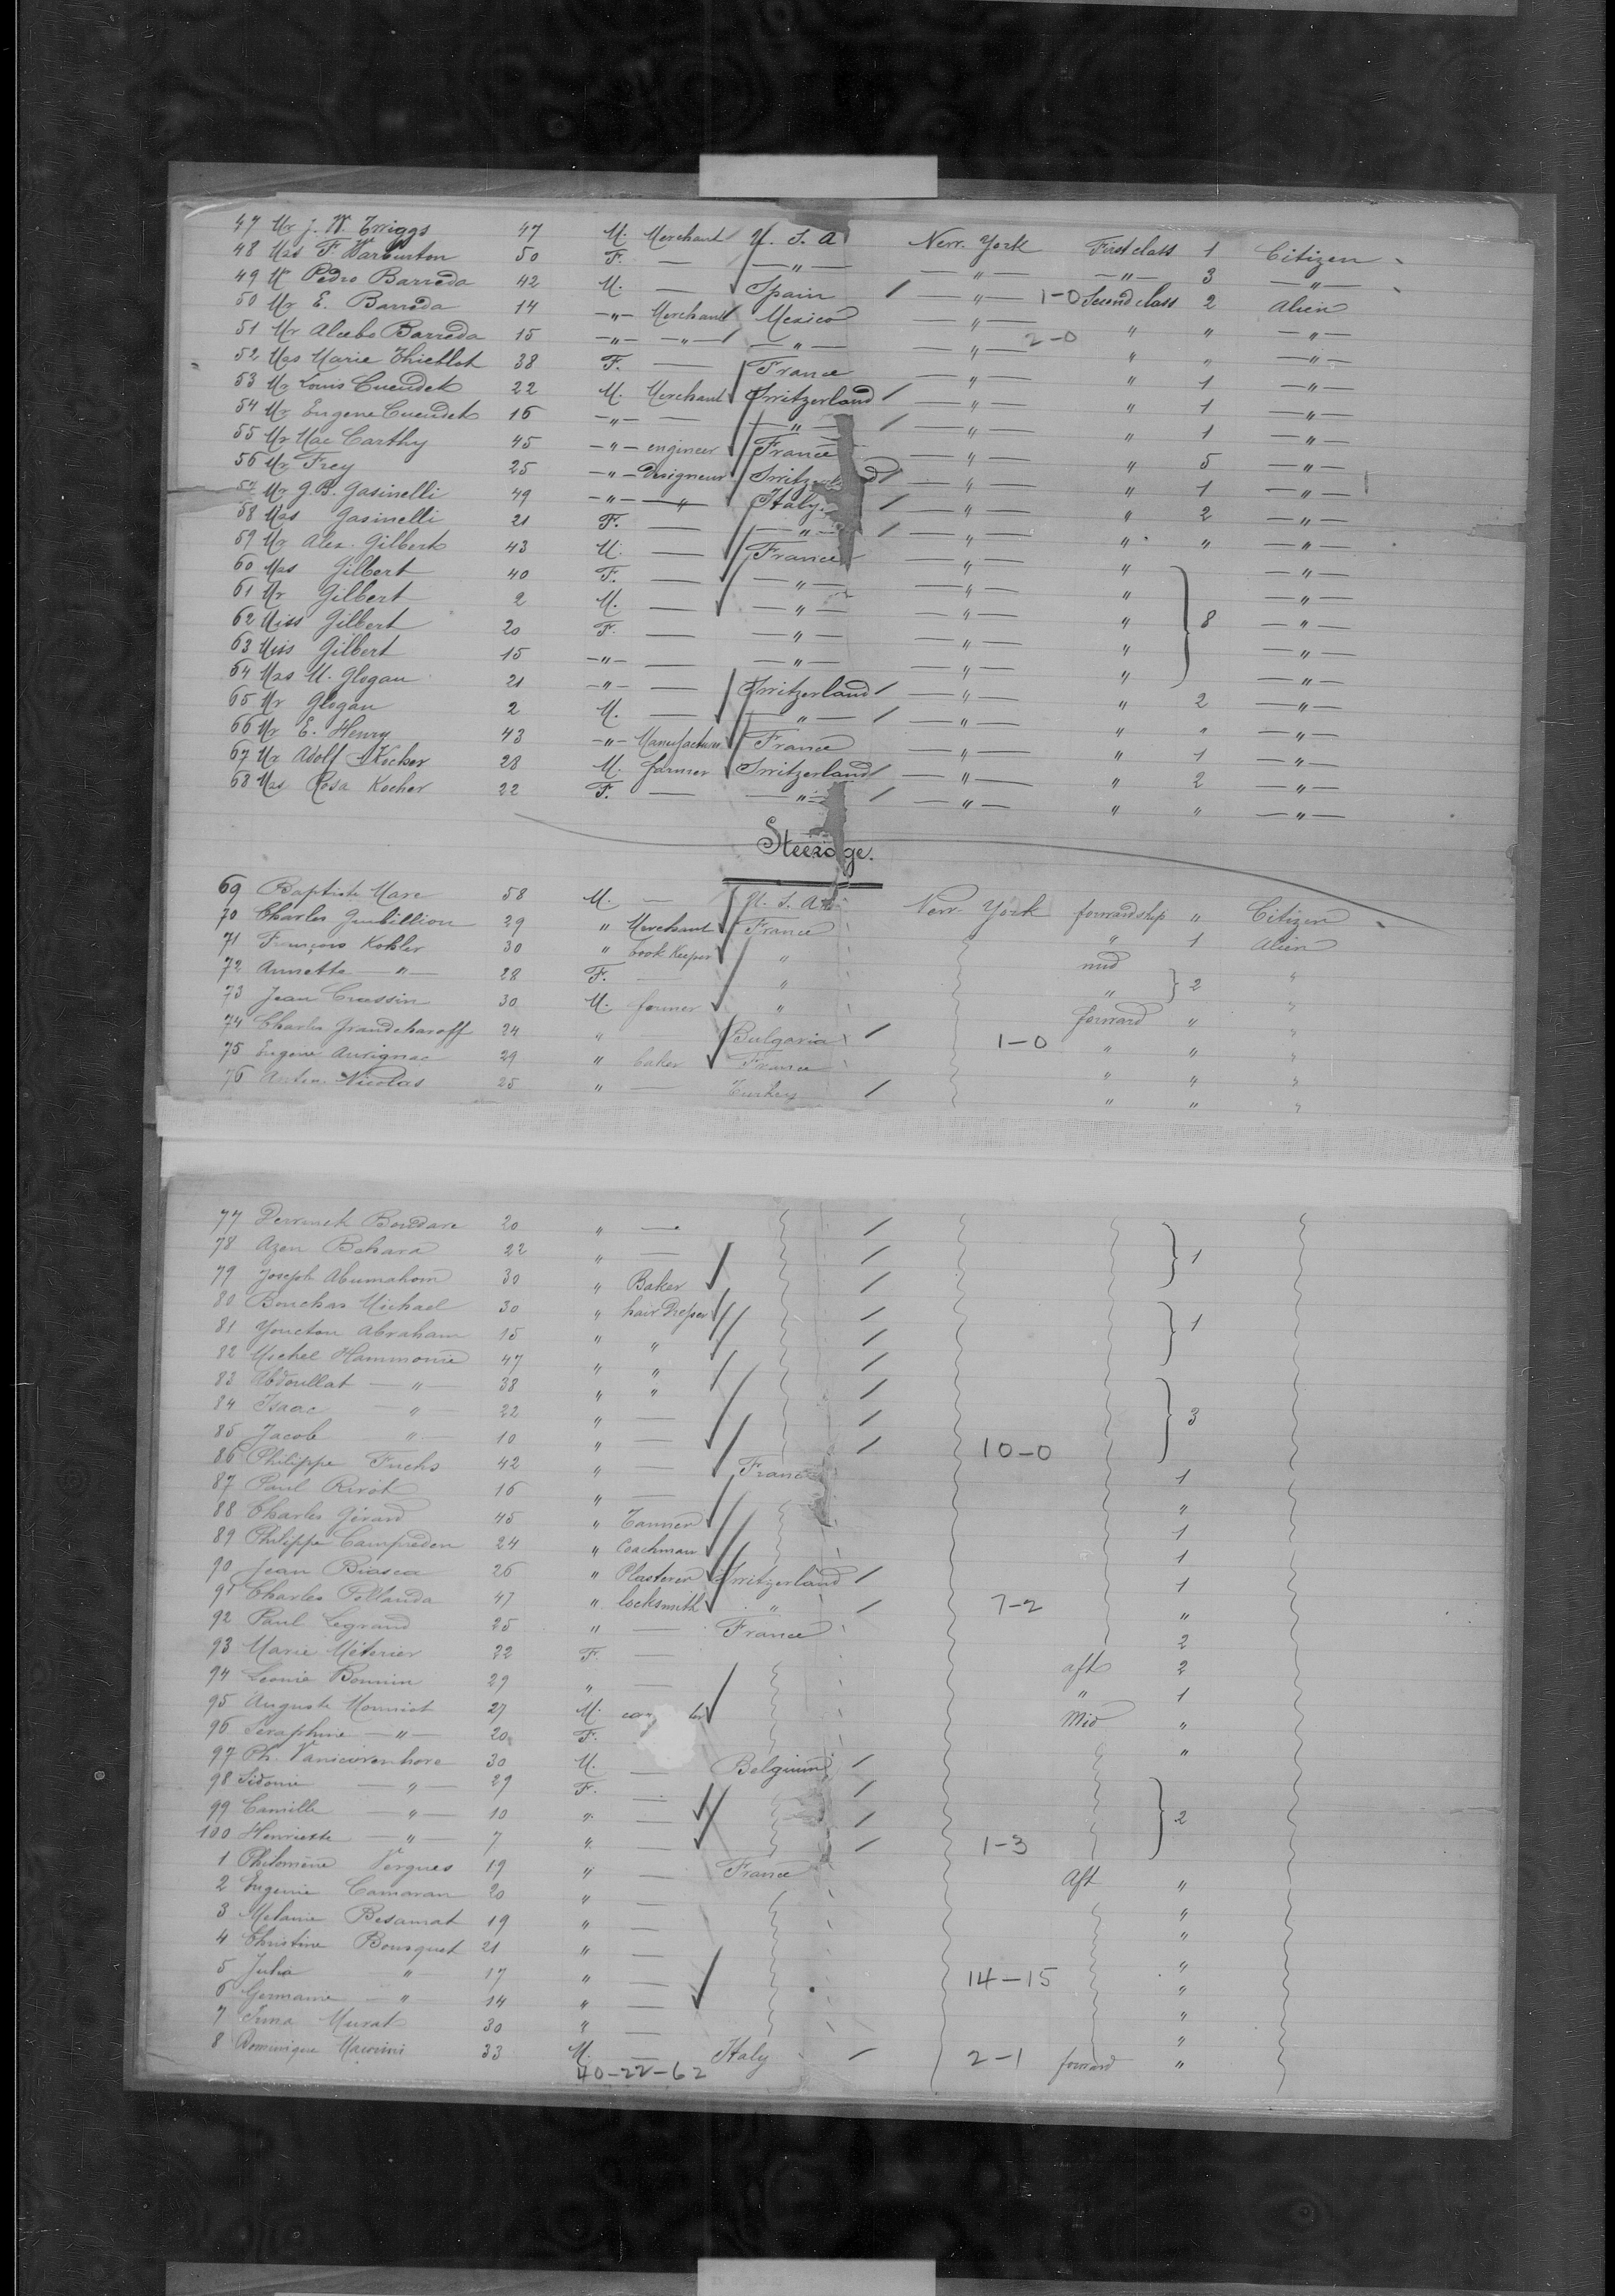 47 Mr J. W. Griggs 47 M. Merchant U. S. A New. York First class 1 Citizen
48 Mrs F. Warburton 50 F. — —"— —"— —"— 3 —"—
49 Mr Pedro Barreda 42 M. — Spain —"— 1-0 Second class 2 Alien
50 Mr E. Barreda 14 —"— Merchant Mexico —"— " " —"—
51 Mr Barreda 15 —"— —"— —"— —"— 2-0 " " —"—
52 Mrs Marie Thieblot 38 F. — France —"— " 1 —"—
53 Mr Louis Cuendet 22 M. Merchant Switzerland —"— " 1 —"—
54 Mr Eugene Cuendet 16 —"— — —"— —"— " 1 —"—
55 Mr Mac Carthy 45 —"— engineer France —"— " 5 —"—
56 Mr Frey 25 —"— Designeur —"— " 1 —"—
57 Mr G. B. Gasinelli 49 —"— —"— Italy. —"— " 2 —"—
58 Mrs Gasinelli 21 F. — —"— —"— " " —"—
59 Mr Alex. Gilbert 43 M. — France —"— " —"—
60 Mrs Gilbert 40 F. — —"— —"— " —"—
61 Mr Gilbert 2 M. — —"— —"— " 8 —"—
62 Miss Gilbert 20 F. — —"— —"— " —"—
63 Miss Gilbert 15 —"— — —"— —"— " —"—
64 Mrs M. Glogau 21 —"— — Switzerland —"— " 2 —"—
65 Mr Glogau 2 M. — —"— —"— " " —"—
66 Mr E. Henry 43 —"— Manufacturer France —"— " 1 —"—
67 Mr Adolf Kocher 28 M. farmer Switzerland —"— " 2 —"—
68 Mrs Rosa Kocher 22 F. — —"— —"— " " —"—
Steerage.
69 Baptiste Marc 58 M. — U. S. A New York forwardship " Citizen
70 Charles 29 " Merchant France " 1 Alien
71 François Kohler 30 " book Keeper " mid "
72 Annette —"— 28 F. — " " 2 "
73 Jean Crassin 30 M. farmer " forward " "
74 Charles Grandcharoff 24 " — Bulgaria 1-0 " " "
75 Eugène Aurignac 29 " baker France " " "
76 Nicolas 25 " — Turkey " " "
77 Boudare 20 " —
78 Azen Behara 22 " — 1
79 Joseph Abumahom 30 " Baker
80 Bouchar Michael 30 " hair Dresser 1
81 Youcton Abraham 15 " "
82 Michel Hammonie 47 " "
83 Abdoullat —"— 38 " "
84 Isaac —"— 22 " — 3
85 Jacob —"— 10 " — 10-0
86 Philippe Fuchs 42 " — France 1
87 Paul Rivot 16 " — "
88 Charles Girard 45 " Tanner 1
89 Philippe Campredon 24 " Coachman 1
90 Jean Biasca 26 " Plasterer Switzerland 1
91 Charles Pellanda 47 " locksmith " 7-2 "
92 Paul Legrand 25 " — France 2
93 Marie Méterier 22 F. — aft 2
94 Leonie Bonnin 29 " — " 1
95 Auguste Monniot 27 M. Mid "
96 Seraphine —"— 20 F. "
97 Ph. 30 M. — Belgium
98 Sidonie —"— 29 F. —
99 Camille —"— 10 " — 2
100 Henriette —"— 7 " — 1-3
1 Philomène Vergnes 19 " — France Aft "
2 Eugenie Camaran 20 " — "
3 Melanie Besamat 19 " — "
4 Christine Bousquet 21 " — "
5 Julia " 17 " — 14-15 "
6 Germaine —"— 14 " — "
7 Irma Murat 30 " — "
8 Dominique 33 M. — Italy 2-1 forward "
40-22-62